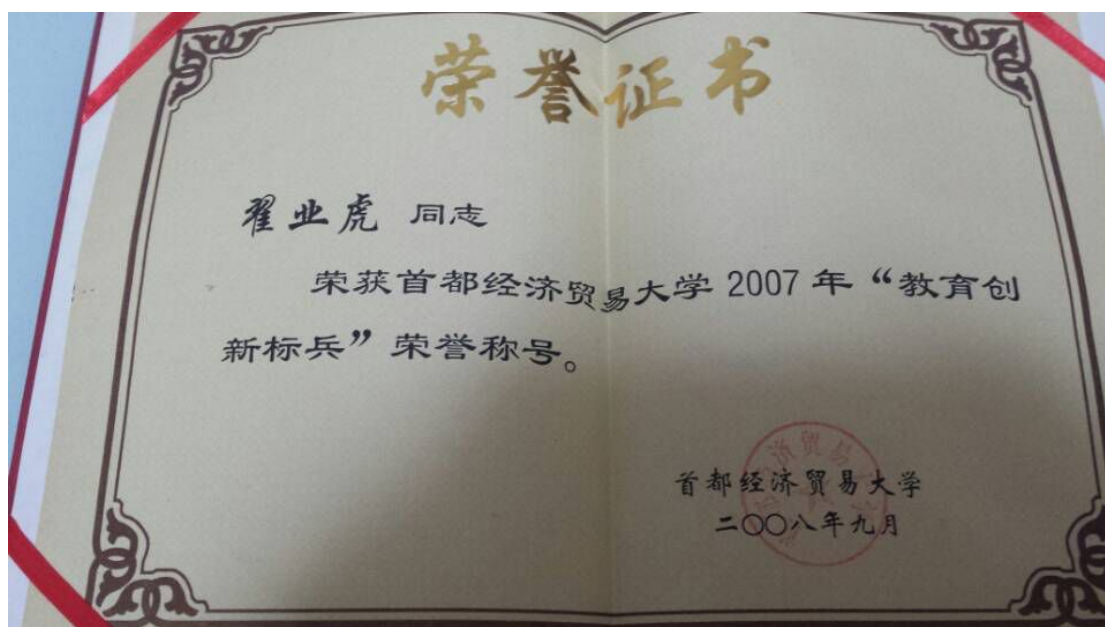 荣誉证书
翟业虎 同志
荣获首都经济贸易大学 2007 年“教育创
新标兵”荣誉称号。
首都经济贸易大学
二〇〇八年九月